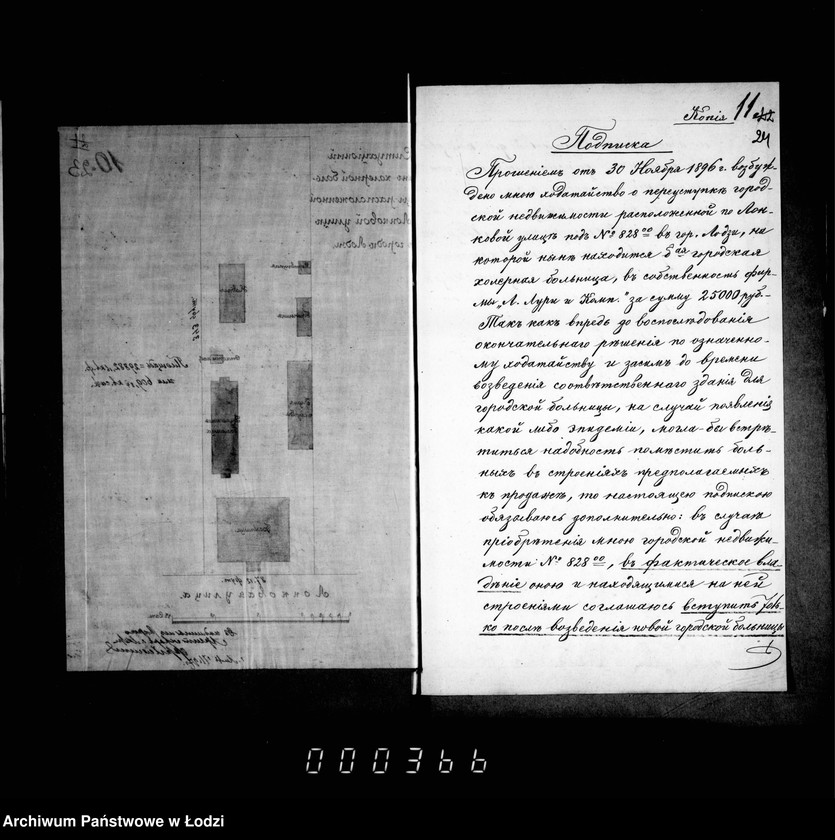 Копія 11
24
Подписка
Прошеніемъ отъ 30 Ноября 1896 г. возбуж-
дено мною ходатайство о переуступкѣ город-
ской недвижимости расположенной по Лон-
ковой улицѣ подъ № 828 ᵒᵒ въ гор. Лодзи, на
которой нынѣ находится 6ᵃˣ городская
холерная больница, въ собственность фир-
мы „А. Лури и Комп." за сумму 25000 руб.-
Такъ какъ впредь до воспослѣдованія
окончательнаго рѣшенія по означенно-
му ходатайству и засимъ до времени
возведенія соотвѣтственнаго зданія для
городской больницы, на случай появленія
какой либо эпидеміи, могла-бы встрѣ-
титься надобность помѣстить боль-
ныхъ въ строеніяхъ предполагаемыхъ
къ продажѣ, то настоящею подпискою
обязываюсь дополнительно: въ случаѣ
пріобрѣтенія мною городской недвижи-
мости № 828 ᵒᵒ, въ фактическое вла-
дѣніе оною и находящимися на ней
строеніями соглашаюсь вступить толь-
ко послѣ возведенія новой городской больницы
10 23
Ситуаціонный
холерной боль
расположенной
Лонковой улицѣ
городѣ Лодзи
Площадь
Лонковая улица
000366
Archiwum Państwowe w Łodzi